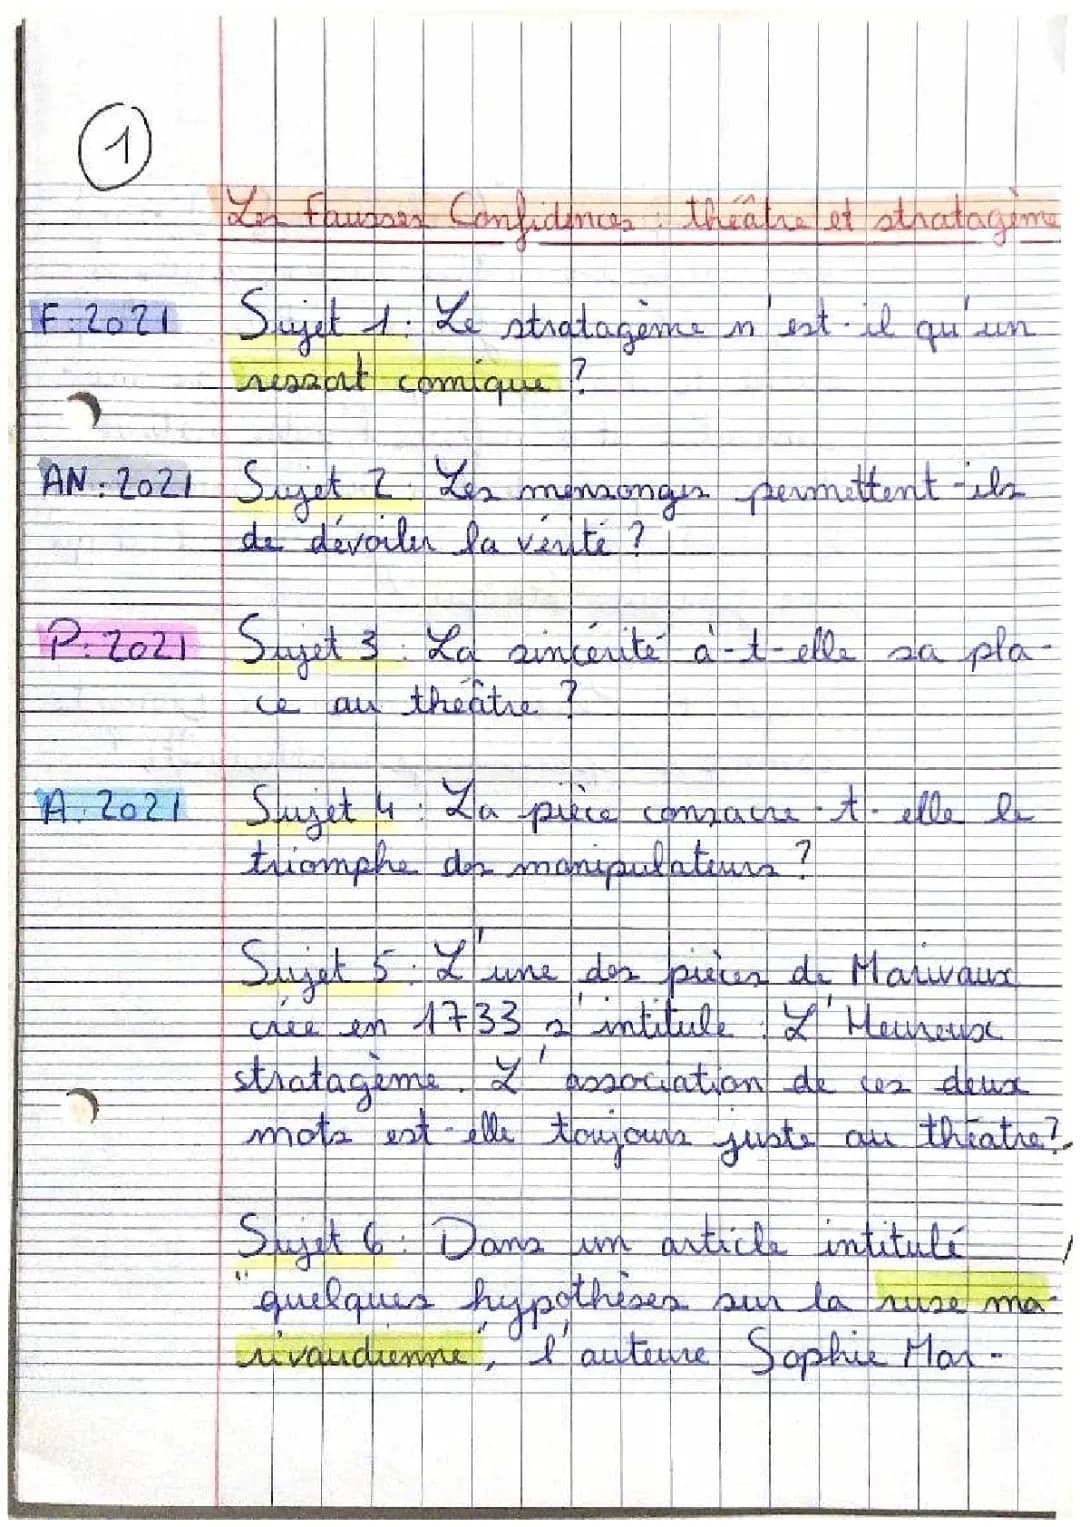 1
Les Fausses Confidences : théâtre et stratagème
F: 2021 Sujet 1: Le stratagème n'est-il qu'un
ressort comique ?
AN: 2021 Sujet 2: Les mensonges permettent-ils
de dévoiler la vérité ?
P: 2021 Sujet 3: La sincérité à-t-elle sa pla-
ce au théâtre ?
A: 2021 Sujet 4: La pièce consacre-t-elle le
triomphe des manipulateurs ?
Sujet 5: L'une des pièces de Marivaux
crée en 1733 s'intitule: L'Heureux
stratagème. L'association de ces deux
mots est-elle toujours juste au théatre?
Sujet 6: Dans un article intitulé
"quelques hypothèses sur la ruse ma-
rivaudienne", l'auteure Sophie Mar-